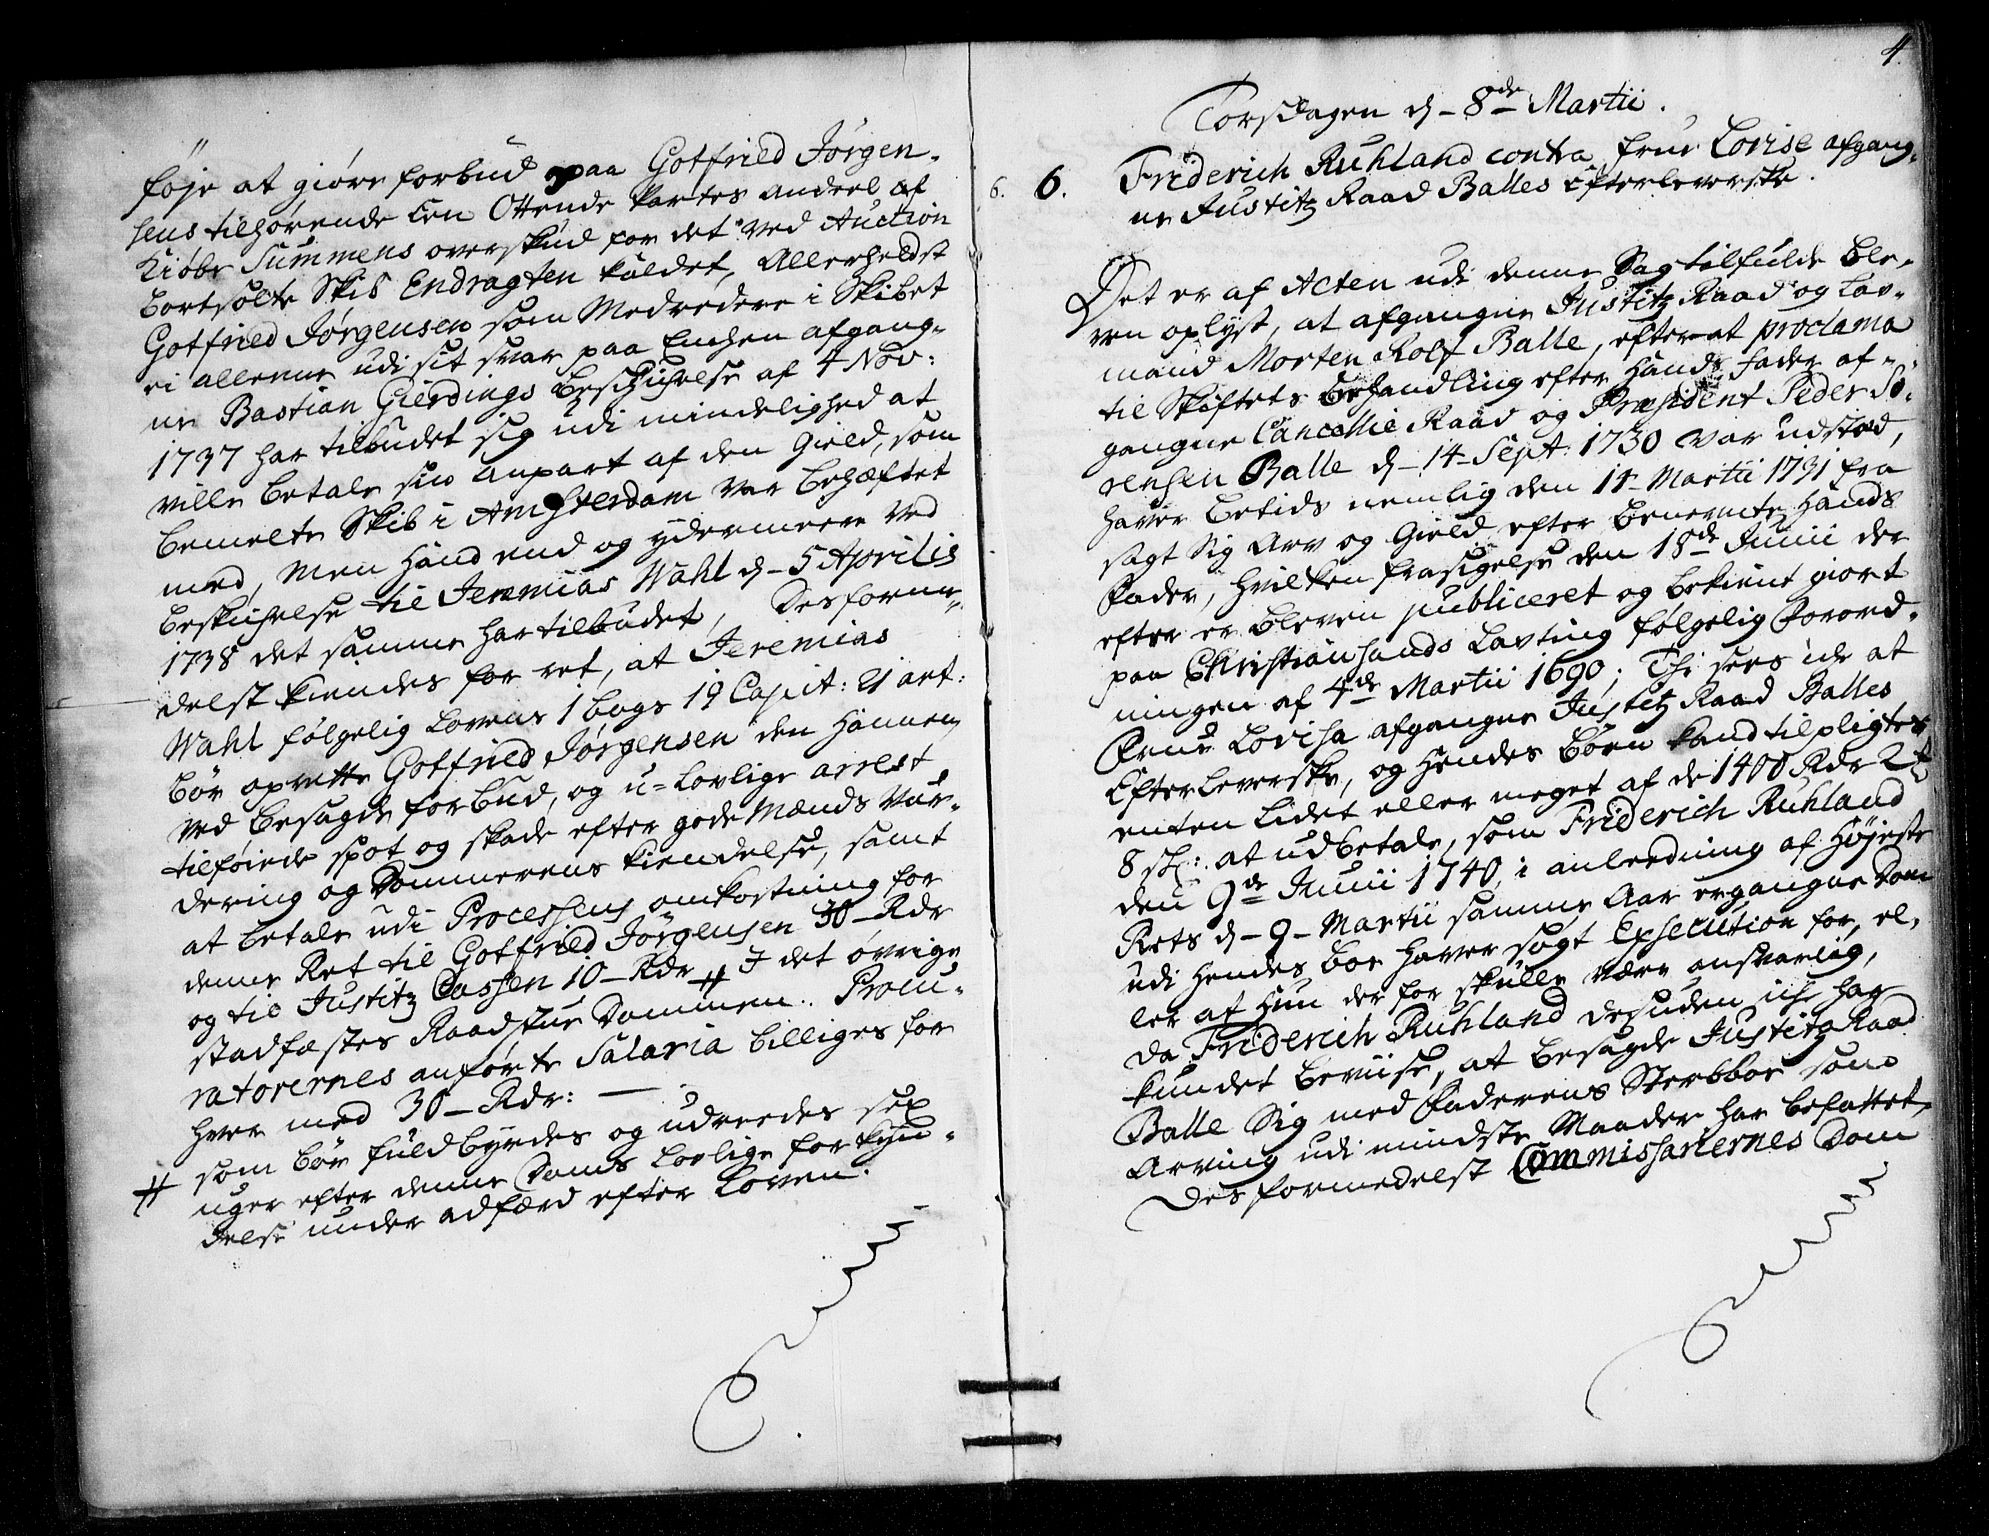 føje at giøre forbud paa Gotfried Jörgen-
sens tilhørende een Ottende Partes andeel af
Kiøbe Summens overskud for det ved Auction
bortsolte Skib Endragten kaldet, Allerhelst
Gotfried Jörgensen som Medreedere i Skibet
ei alleene udi sit svar paa Enchen afgang-
ne Bastian Gierdings beskichelse af 4 Nov:
1737 har tilbudet sig udi mindelighed at
ville betale sin anpart af den Gield, som
bemelte Skib i Amsterdam var behæftet
med, Men hand end og ydermeere ved
beskichelse til Jeremias Wahl d- 5 Aprilis
1738 det samme har tilbudet, Desforme-
delst kiendes for ret, at Jeremias
Wahl følgelig Lovens 1 bogs 19 Capit: 21 art:
bör oprette Gotfried Jörgensen den Hannem
ved besagde forbud, og u-lovlige arrest
tilføiede spot og skade efter gode Mænds Vur-
dering og Dommerens kiendelse, samt
at betale udi Processens omkostning for
denne Ret til Gotfried Jörgensen 30- Rdr
og til Justitz Cassen 10- Rdr # I det øvrige
stadfæstes Raadstue Dommen. Procu-
ratorernes anførte Salaria billiges for
hver med 30- Rdr:
# som bör fuldbyrdes og udreedes sex
uger efter denne Doms lovlige forkyn-
delse under adfærd efter Loven.
4.
Torsdagen d- 8de Martii.
6. 6. Friderich Ruhland contra frue Lovise afgang-
ne Justitz Raad Balles Efterleverske.
Det er af Acten udi denne Sag tilfulde ble-
ven oplyst, at afgangne Justitz Raad og Lav-
mand Morten Rolf Balle, efter at proclama
til Skiftets behandling efter Hands Fader af-
gangne Cancellie Raad og Præsident Peder Sö-
rensen Balle d- 14 Sept: 1730 var udstæd,
haver betids nemlig den 14 Martii 1731 fra
sagt Sig Arv og Gield efter bemelte Hands
Fader, hvilken frasigelse den 18de Junii der
efter er bleven publiceret og bekiænt giort
paa Christiansands Lavting følgelig Forord-
ningen af 4de Martii 1690; Thi sees icke at
Frue Lovisa afgangne Justitz Raad Balles
Efterleverske, og Hendes börn kand tilpligtes
enten lidet eller meget af de 1400 Rdr 2 #
8 sk: at udbetale, som Friderich Ruhland
den 9de Junii 1740, i anledning af Høieste
Rets d- 9- Martii samme Aar ergangne Dom
udi Hendes boe haver søgt Execution for, el-
ler af Hun der for skulle være ansvarlig,
da Friderich Ruhland desuden icke har
kundet beviise, at besagde Justitz Raad
Balle Sig med Faderens Sterbboe som
Arving udi mindste Maader har befattet,
Desformedelst Commissariernes Dom